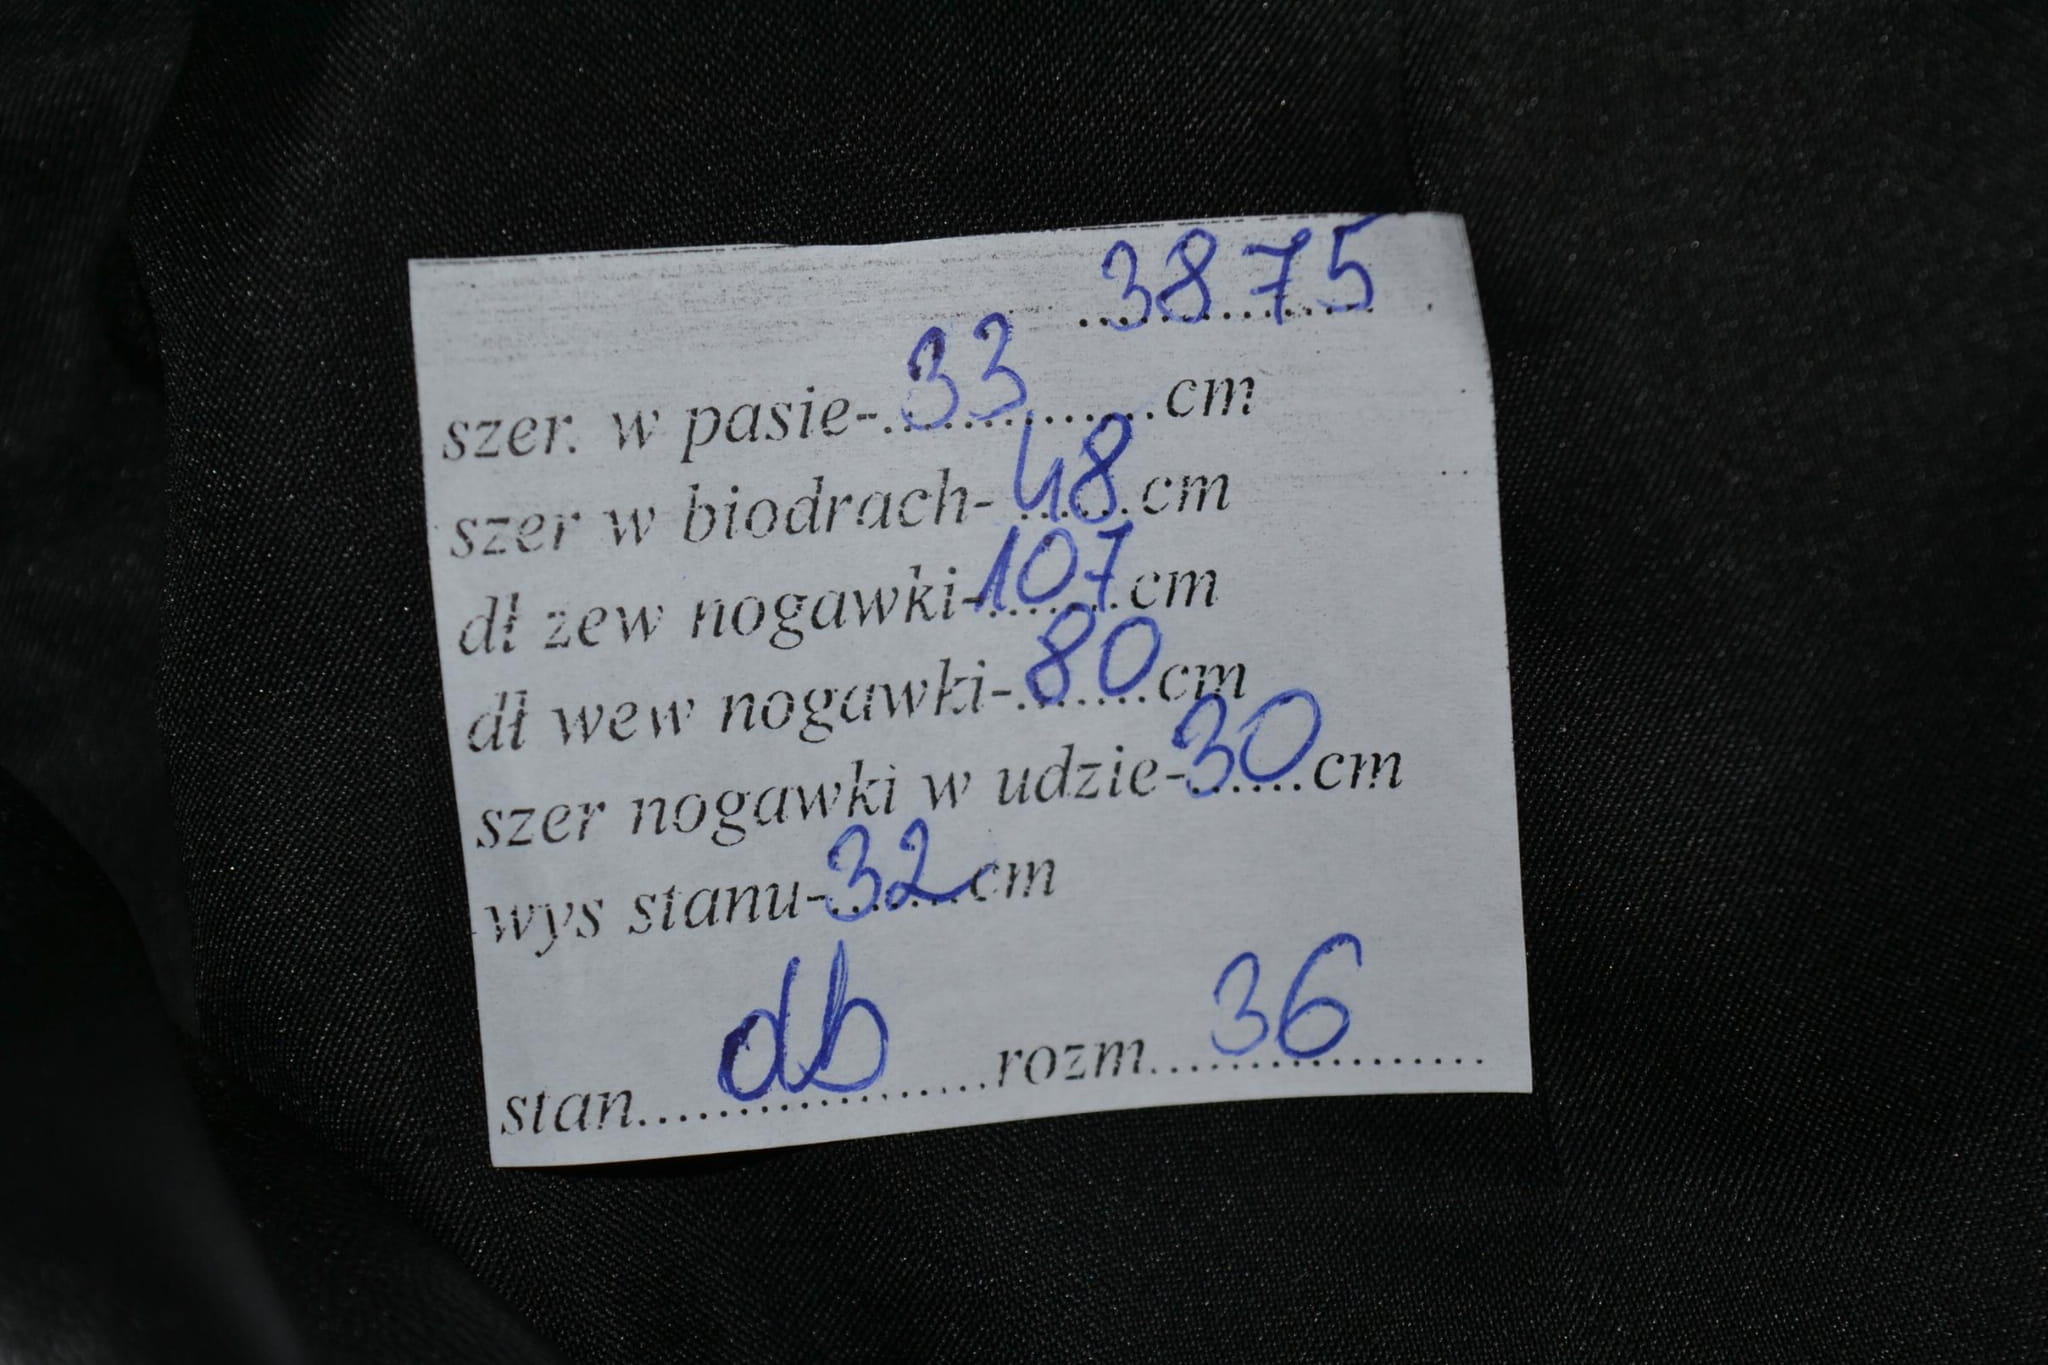 3875
szer. w pasie-33cm
szer w biodrach-48cm
dł zew nogawki-107cm
dł wew nogawki-80cm
szer nogawki w udzie-30cm
wys stanu-32cm
stan....db....rozm....36....